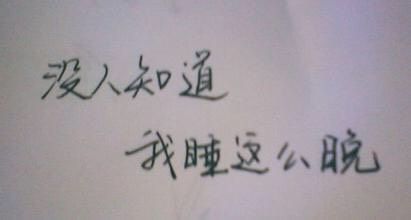 没人知道
我睡这么晚